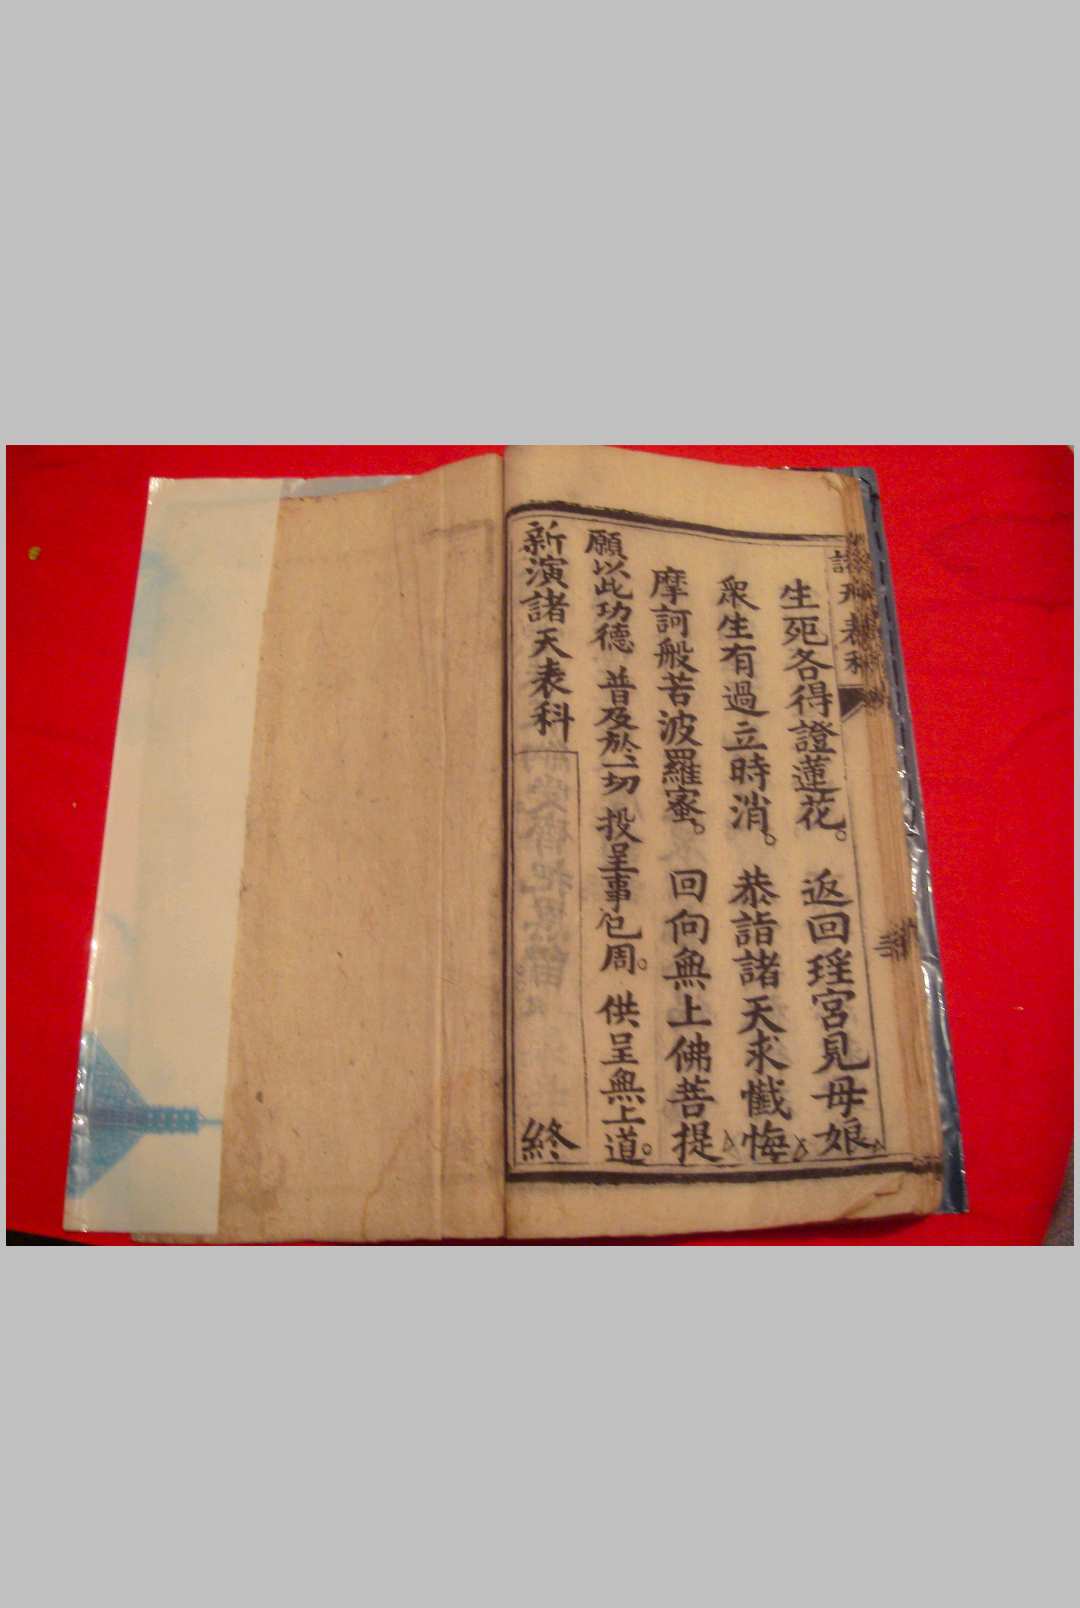 生死各得證蓮花。返回瑶宮見母娘
衆生有過立時消。恭詣諸天求懺悔
摩訶般若波羅蜜。回向無上佛菩提
願以此功德 普及於一切 投呈事已周。供呈無上道。
新演諸天表科 終